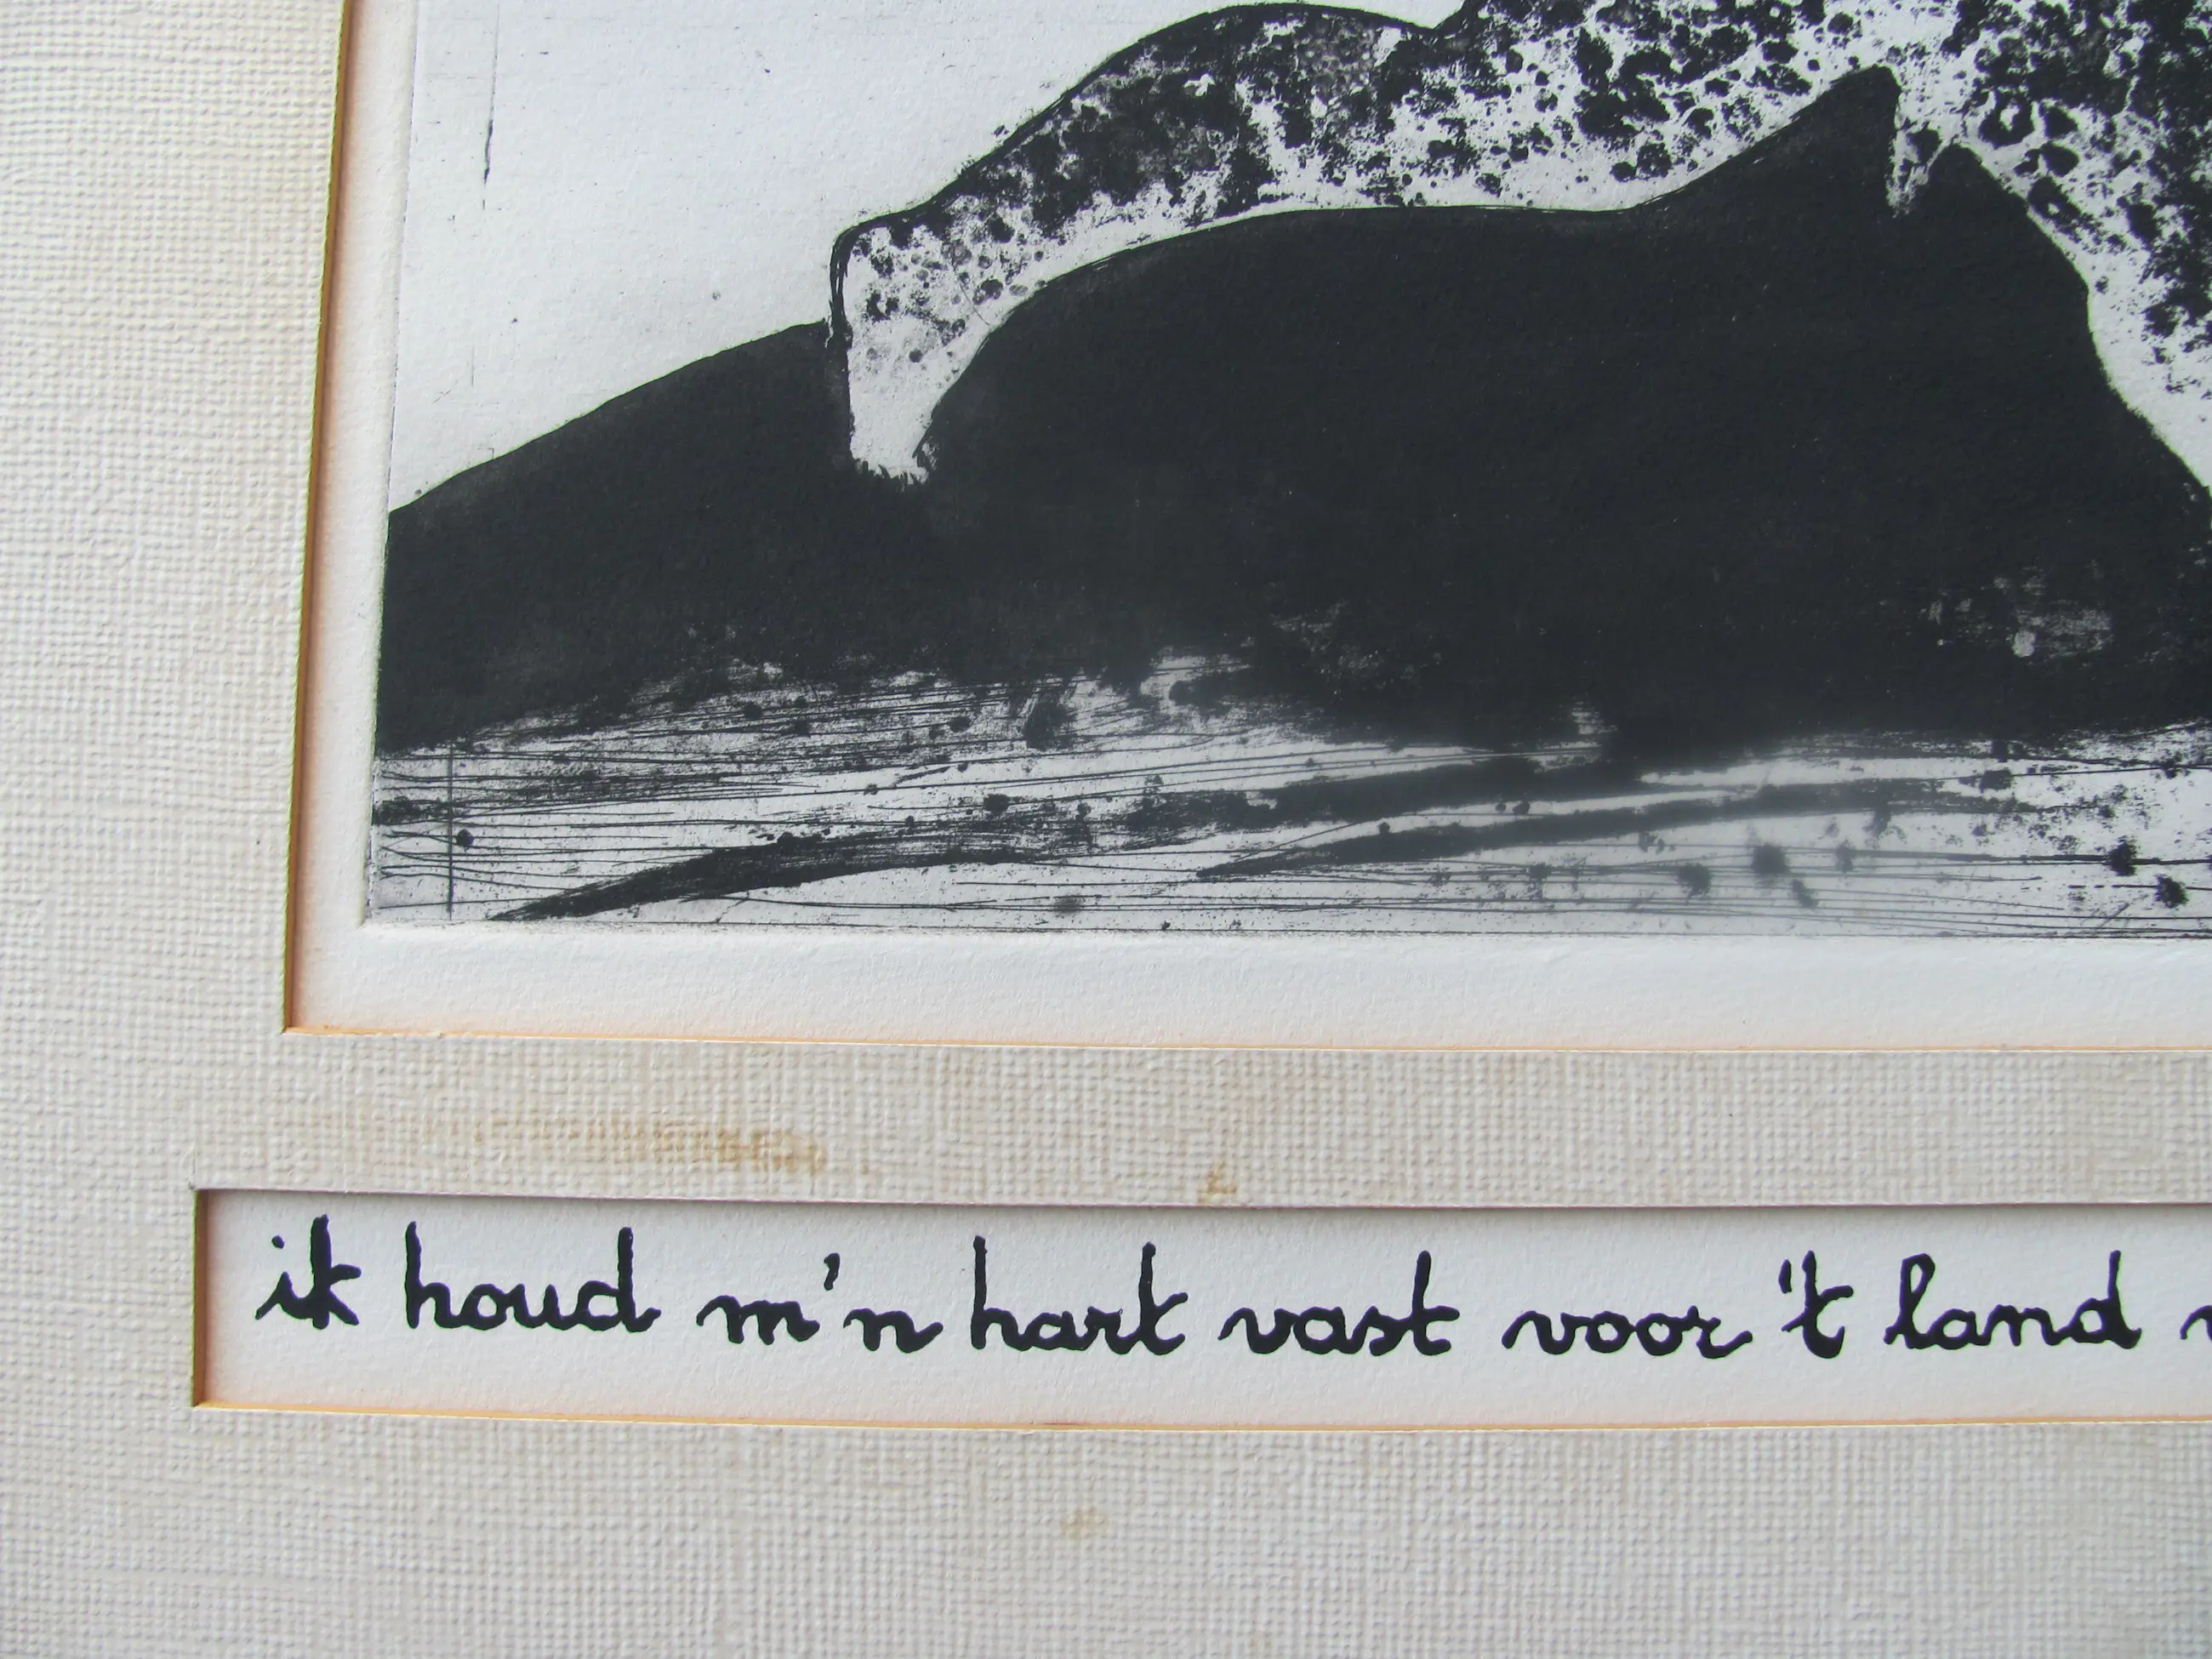 ik houd m'n hart vast voor 't land